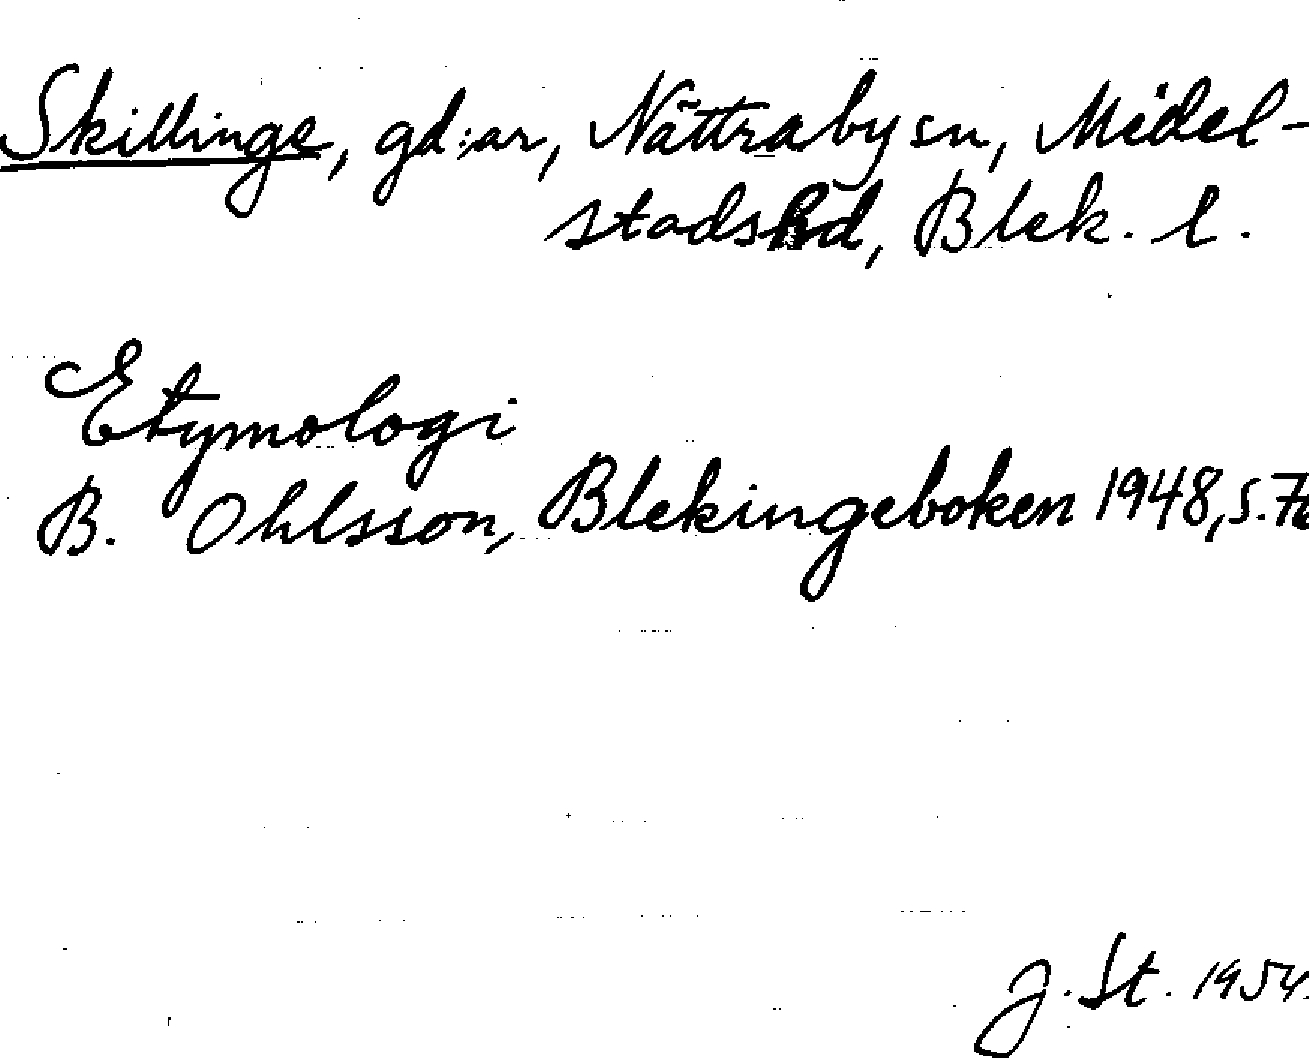 Skillinge, gd:ar, Nättraby sn, Medel-
stads hd, Blek. l.
Etymologi
B. Ohlsson, Blekingeboken 1948, s. 76
J. St. 1954.